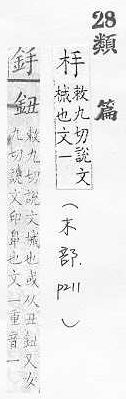 28類篇
杽 敕九切說文
械也文一
(木部. P211)
鈕 敕九切說文械也或从丑鈕又女
九切說文印鼻也文一重音一